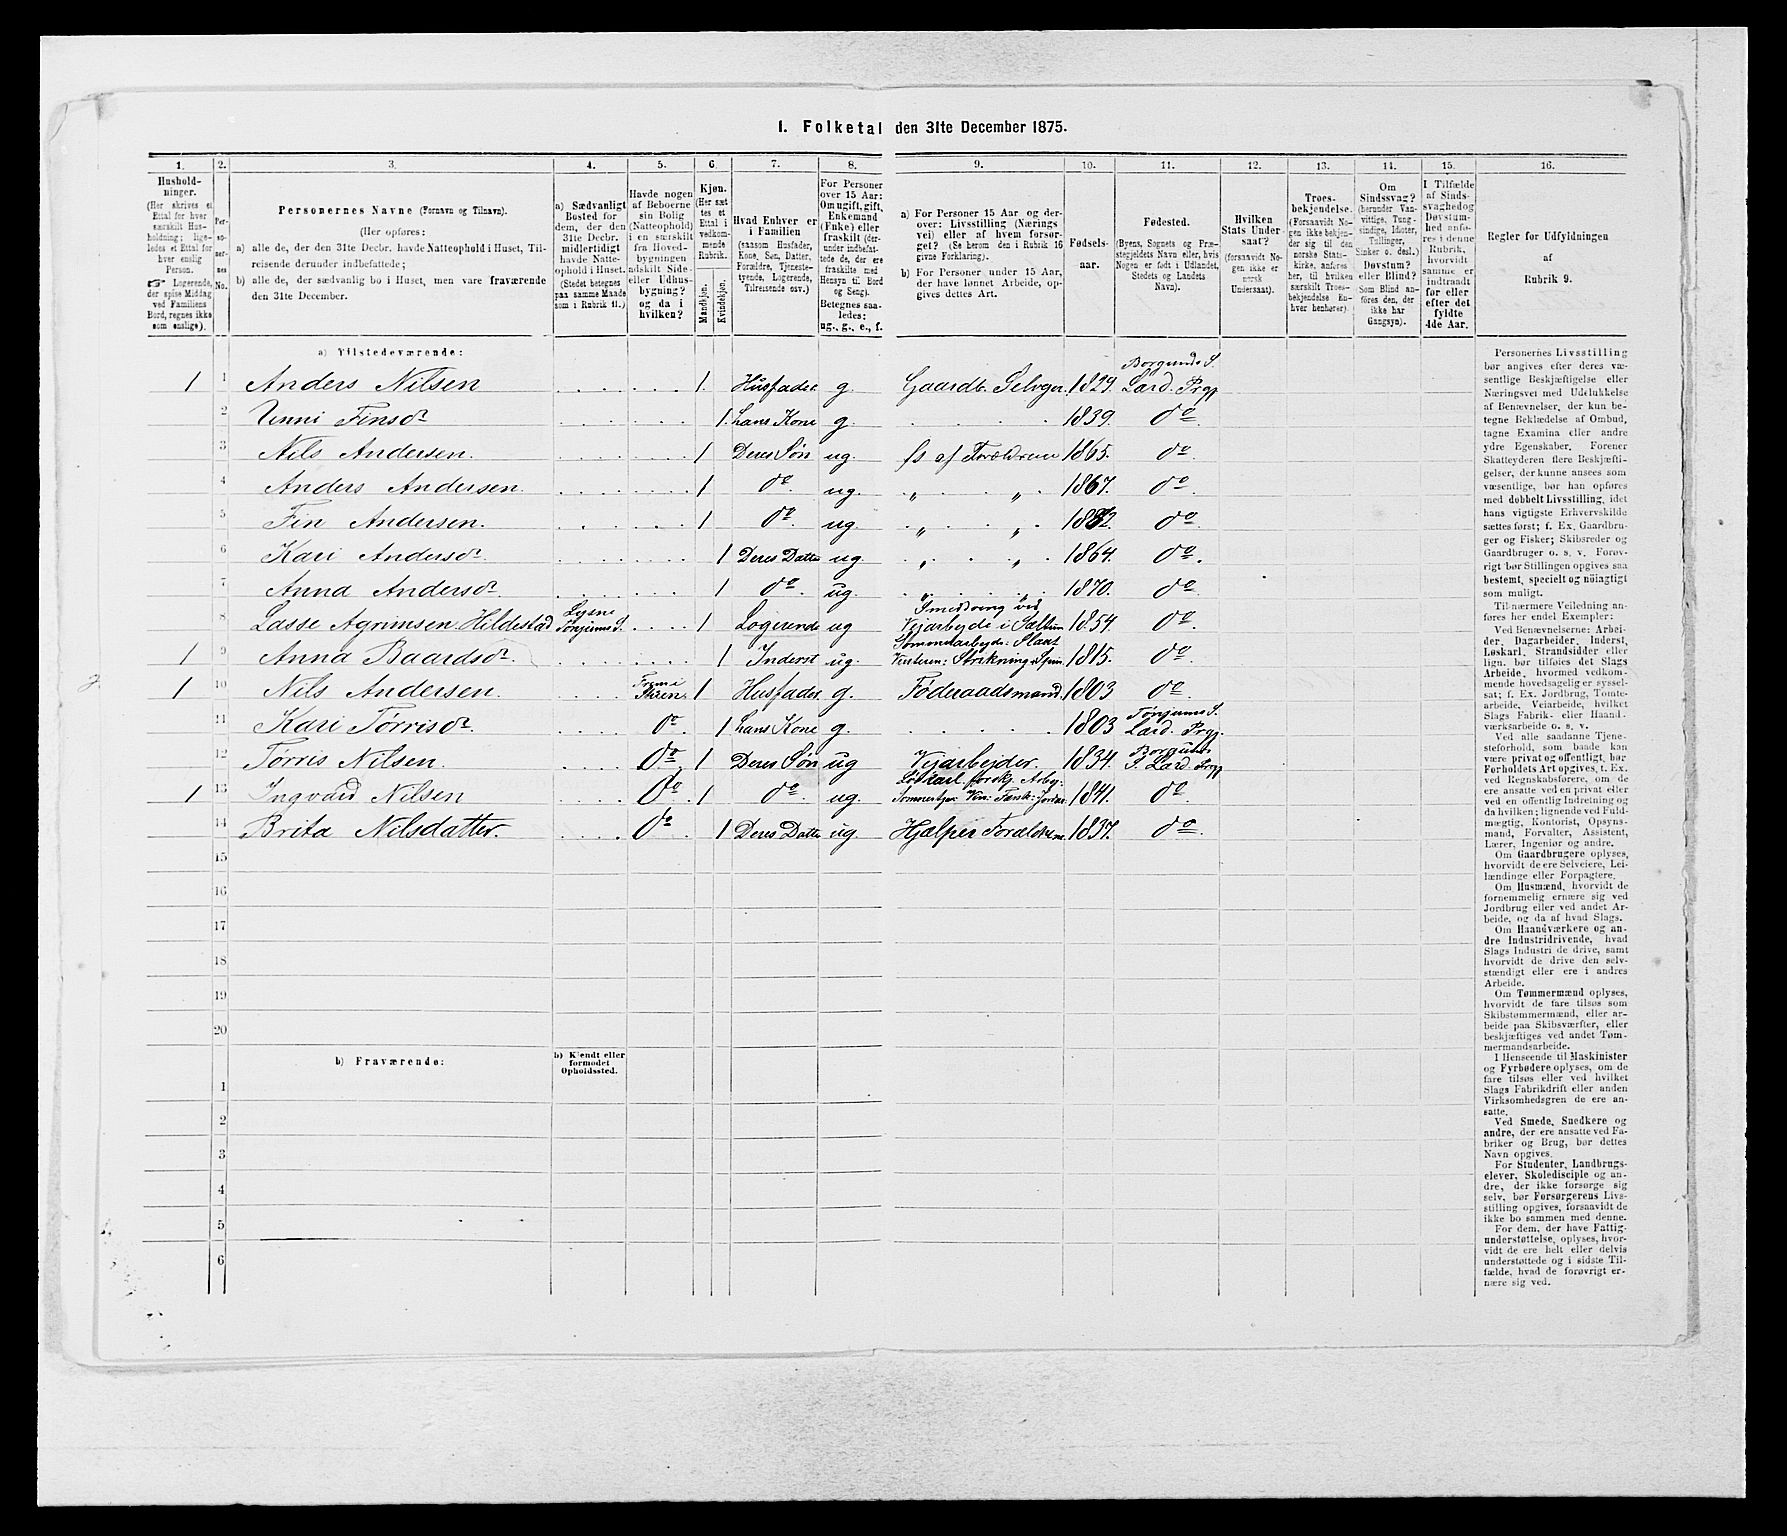 I. Folketal den 31te December 1875.
1. 2. 3. 4. 5. 6. 7. 8. 9. 10. 11. 12. 13. 14. 15. 16.
Hushold-
ninger.
(Her skrives et
Ettal for hver
særskilt Hus-
holdning; lige-
ledes et Ettal for
hver enslig
Person.
☞ Logerende,
der spise Middag
ved Familiens
Bord, regnes ikke
som enslige).
Per-
so-
ner-
nes
No.
Personernes Navne (Fornavn og Tilnavn).
(Her opføres:
a) alle de, der den 31te Decbr. havde Natteophold i Huset, Til-
reisende derunder indbefattede;
b) alle de, der sædvanlig bo i Huset, men vare fraværende
den 31te December.
a) Sædvanligt
Bosted for
dem, der den
31te Decbr.
midlertidigt
havde Natte-
ophold i Huset.
(Stedet betegnes
paa samme Maade
som i Rubrik 11.)
Havde nogen
af Beboerne
sin Bolig
(Natteophold)
i en særskilt
fra Hoved-
bygningen
adskilt Side-
eller Udhus-
bygning?
og da i
hvilken?
Kjøn.
(Her sæt-
tes et
Ettal i
vedkom-
mende
Rubrik.
Mandkjøn.
Kvindekjøn.
Hvad Enhver er
i Familien
(saasom Husfader,
Kone, Søn, Datter,
Forældre, Tjeneste-
tyende, Logerende,
Tilreisende osv.)
For Personer
over 15 Aar:
Om ugift, gift,
Enkemand
(Enke) eller
fraskilt (der-
under indbefat-
tede de, der ere
fraskilte med
Hensyn til Bord
og Seng).
Betegnes saa-
ledes:
ug., g., e., f.
a) For Personer 15 Aar og der-
over: Livsstilling (Nærings-
vei) eller af hvem forsør-
get? (Se herom den i Rubrik 16
givne Forklaring).
b) For Personer under 15 Aar,
der have lønnet Arbeide, op-
gives dettes Art.
Fødsels-
aar.
Fødested.
(Byens, Sognets og Præ-
stegjeldets Navn eller, hvis
Nogen er født i Udlandet,
Stedets og Landets
Navn).
Hvilken
Stats Under-
saat?
(forsaavidt No-
gen ikke er
norsk
Undersaat).
Troes-
bekjendelse.
(Forsaavidt No-
gen ikke bekjen-
der sig til den
norske Stats-
kirke, anføres
her, til hvilken
særskilt Troes-
bekjendelse En-
hver henhører).
Om
Sindssvag?
(herunder Van-
vittige, Tung-
sindige, Idioter,
Tullinger,
Sinker o. desl.)
Døvstum?
eller Blind?
Som Blind an-
føres den, der
ikke har
Gangsyn).
I Tilfælde
af Sinds-
svaghed og
Døvstum-
hed anfø-
res i denne
Rubrik,
hvorvidt
samme er
indtraadt
før eller
efter det
fyldte
4de Aar.
Regler for Udfyldningen
af
Rubrik 9.
a) Tilstedeværende:
1 1 Anders Nilsen 1 Husfader g. Gaardb. Selvger. 1829. Borgunds S. Lærd. Prgj
2 Unni Finsdr 1. hans Kone g. 1839. do
3 Nils Andersen. 1 Deres Søn ug. fs af Forældrene 1865. do
4 Anders Andersen. 1 do. ug. „ „ 1867. do
5 Fin Andersen. 1 do. ug. „ „ 1872. do
6 Kari Andersdr. 1 Deres Datter ug. „ „ 1864. do.
7 Anna Andersdr. 1 do. ug. „ „ 1870. do
8 Lasse Agrimsen Hildestad Lysne Tønjums S. 1 Logerende ug Smedning ved Vejarbejde i 1854. do.
1 9 Anna Baardsdr. 1 Inderst ug. Sommerarbejde: Slaat Vinteren: Strikning, Spin. 1815. do
1 10 Nils Andersen. 1 Husfader g. Føderaadsmand. 1803 do
11 Kari Torrisdr. do 1 hans Kone g. 1803 Tønjums S. Lærd. Prgj.
12 Torris Nilsen. do. 1 Deres Søn ug Vejarbejder. 1834. Borgunds S. Lærd. Prgj
1 13 Ingvald Nilsen do 1 do. ug. Løskarl. forskj. Arbej. 1841. do
14 Brita Nilsdatter. do 1 Deres Datter ug. Hjælper Forældrene. 1837. do.
15
16
17
18
19
20
b) Fraværende:
b) Kjendt eller
formodet
Opholdssted.
1
2
3
4
5
6
Personernes Livsstilling
bør angives efter deres væ-
sentlige Beskjæftigelse eller
Næringsvei med Udelukkelse
af Benævnelser, der kun be-
tegne Beklædelse af Ombud,
tagne Examina eller andre
ydre Egenskaber. Forener
Skatteyderen flere Beskjæfti-
gelser, der kunne ansees som
væsentlige, bør han opføres
med dobbelt Livsstilling, idet
hans vigtigste Erhvervskilde
sættes først; f. Ex. Gaardbru-
ger og Fisker; Skibsreder og
Gaardbruger o. s. v. Forøv-
rigt bør Stillingen opgives saa
bestemt, specielt og nøiagtigt
som muligt.
Til nærmere Veiledning an-
føres her endel Exempler:
Ved Benævnelserne: Arbei-
der, Dagarbeider, Inderst,
Løskarl, Strandsidder eller
lign. bør tilføies det Slags
Arbeide, hvormed vedkom-
mende hovedsagelig er syssel-
sat; f. Ex. Jordbrug, Tomte-
arbeide, Veiarbeide, hvilket
Slags Fabrik- eller Haand-
værksarbeide o. s. v.
Ved alle saadanne Tjene-
steforhold, som baade kan
være privat og offentlig, bør
Forholdets Art opgives, t. Ex.
ved Regnskabsførere, om de
ere ansatte ved en privat eller
ved en offentlig Indretning og
da hvilken; lignende ved Fuld-
mægtig, Kontorist, Opsyns-
mand, Forvalter, Assistent,
Lærer, Ingeniør og andre.
Om Gaardbrugere oplyses,
hvorvidt de ere Selveiere, Lei-
lændinge eller Forpagtere.
Om Husmænd, hvorvidt de
fornemmelig ernære sig ved
Jordbrug eller ved andet Ar-
beide, og da af hvad Slags.
Om Haandværkere og an-
dre Industridrivende, hvad
Slags Industri de drive, samt
hvorvidt de drive den selv-
stændigt eller ere i andres
Arbeide.
Om Tømmermænd oplyses,
hvorvidt de fare tilsøs som
Skibstømmermænd, eller ar-
beide paa Skibsværfter, eller
beskjæftiges ved andet Tøm-
mermandsarbeide.
I Henseende til Maskinister
og Fyrbødere oplyses, om de
fare tilsøs eller ved hvilket
Slags Fabrikdrift eller anden
Virksomhedsgren de ere an-
satte.
Ved Smede, Snedkere og
andre, der ere ansatte ved Fa-
briker og Brug, bør dettes
Navn opgives.
For Studenter, Landbrugs-
elever, Skoledisciple og an-
dre, der ikke forsørge sig
selv, bør Forsørgerens Livs-
stilling opgives, forsaavidt de
ikke bo sammen med denne.
For dem, der have Fattig-
understøttelse, oplyses, hvor-
vidt de ere helt eller delvis
understøttede og i sidste Til-
fælde, hvad de forøvrigt er-
nære sig ved.